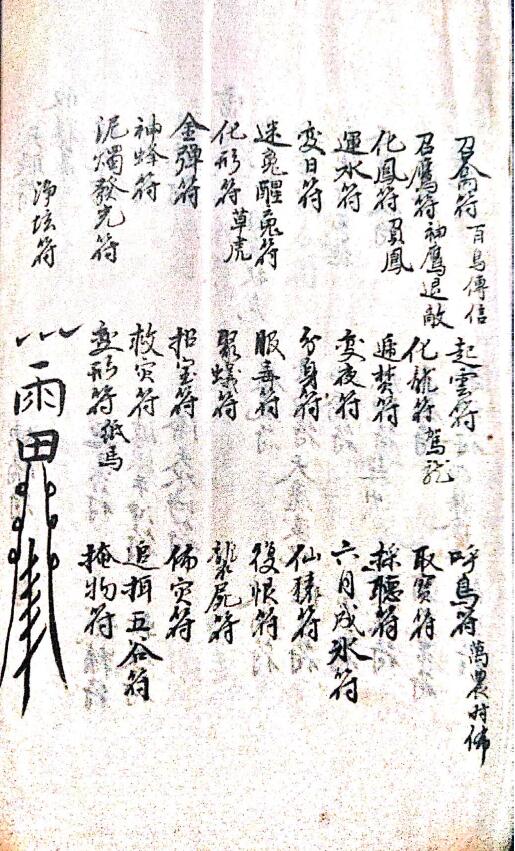 召禽符 百鳥傳信 起雲符 呼鳥符
召鷹符 神鷹退敵 化龍符 駕龍 取寶符
化鳳符 召鳳 遞焚符 採聽符
運水符 變夜符 六月成氷符
變日符 分身符 仙猿符
迷鬼醒鬼符 服毒符 復恨符
化形符 草虎 聚蟻符
金彈符 招宝符
神蜂符 救灾符 追捐五谷符
泥燭發光符 变形符 纸馬 掩物符
淨坛符
雨田